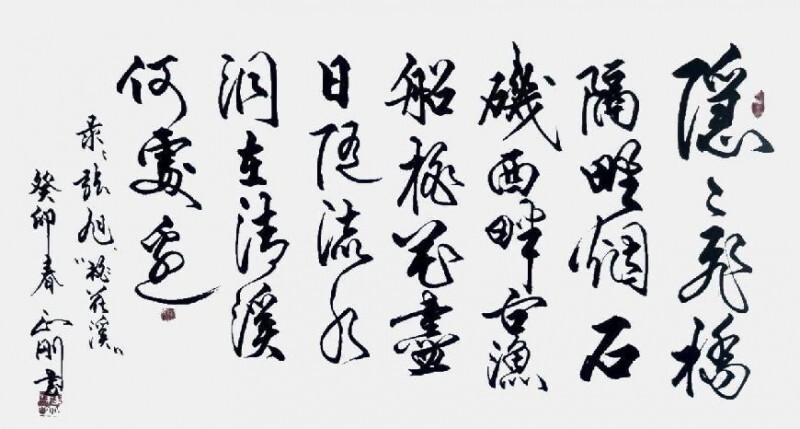 隐々飛橋
隔野烟石
磯西畔问漁
船桃花盡
日随流水
洞在清溪
何處邊
录:張旭"桃花溪"
癸卯春 刚书